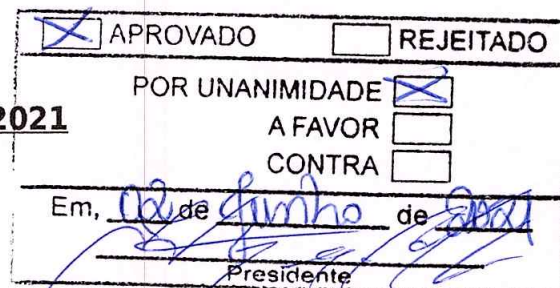 APROVADO REJEITADO
POR UNANIMIDADE
2021 A FAVOR
CONTRA
Em, 02 de Junho de 2021
Presidente